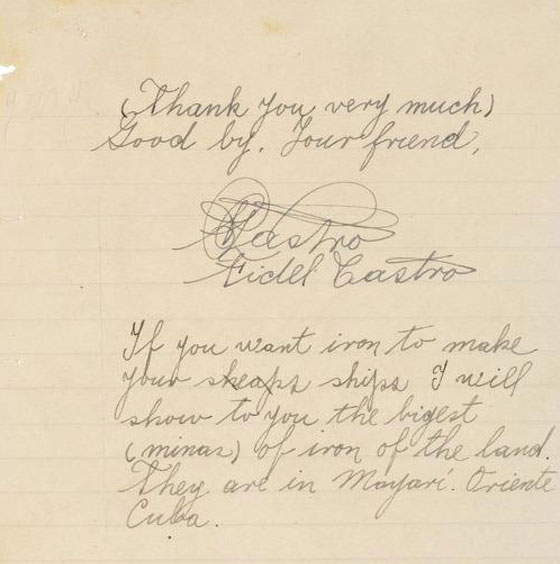 (Thank you very much)
Good by. Your friend,
Castro
Fidel Castro
If you want iron to make
your sheaps ships I will
show to you the bigest
(minas) of iron of the land.
They are in Mayarí. Oriente
Cuba.